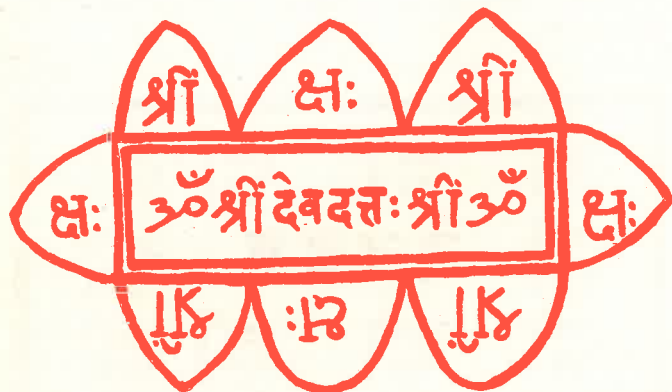 श्रीं क्षः श्रीं
क्षः ॐ श्रीं देवदत्तः श्रीं ॐ क्षः
श्रीं क्षः श्रीं